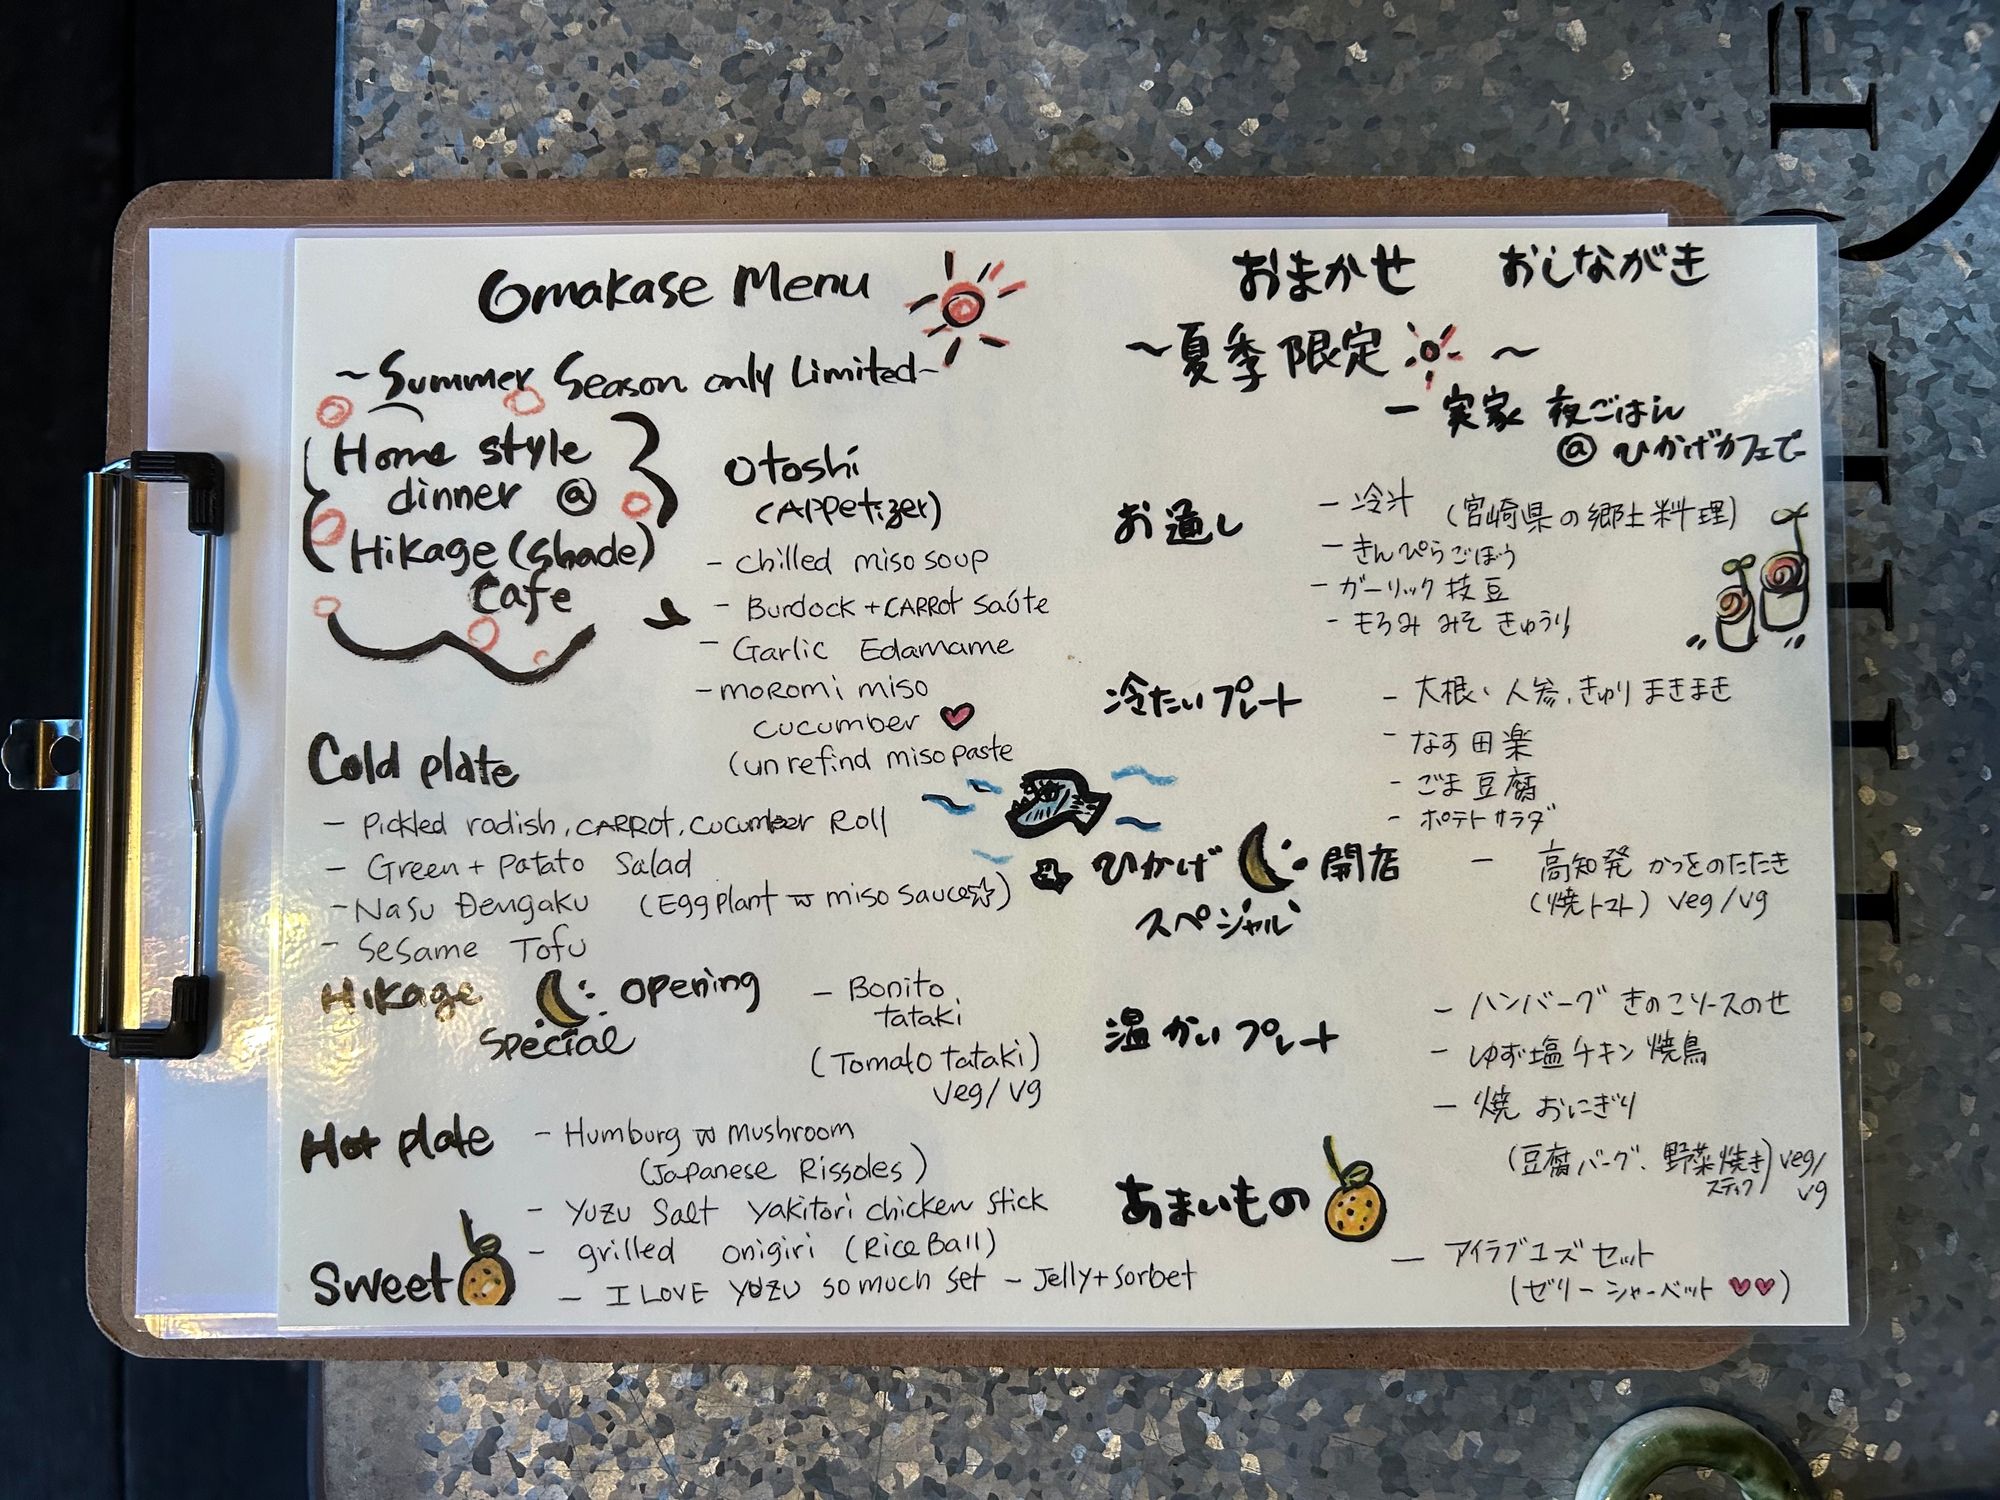 Omakase Menu
~Summer Season only Limited~
Home style
dinner @
Hikage (shade)
Cafe
Otoshi
(Appetizer)
- chilled miso soup
- Burdock + CARROt saúte
- Garlic Edamame
- moromi miso
cucumber
(unrefind miso paste
Cold plate
- Pickled radish, CARROt, cucumber Roll
- Green + Patato Salad
- Nasu Dengaku (Eggplant w miso sauce☆)
- Sesame Tofu
Hikage opening
special
- Bonito
tataki
(Tomato tataki)
veg/vg
Hot plate
- Humburg w mushroom
(Japanese Rissoles)
- Yuzu Salt yakitori chicken stick
- grilled onigiri (Rice Ball)
Sweet
- I LOVE YUZU so much set - Jelly+sorbet
おまかせ おしながき
~夏季限定~
ー 実家 夜ごはん
@ ひかげカフェでー
お通し
- 冷汁 (宮崎県の郷土料理)
- きんぴらごぼう
- ガーリック枝豆
- もろみ みそ きゅうり
冷たいプレート
- 大根、人参、きゅり まきまき
- なす田楽
- ごま豆腐
- ポテトサラダ
ひかげ 開店
スペシャル
- 高知発 かつをのたたき
(焼トマト) veg/vg
温かいプレート
- ハンバーグ きのこソースのせ
- ゆず塩チキン焼鳥
- 焼 おにぎり
(豆腐バーグ、野菜焼き) veg/
スティック vg
あまいもの
- アイラブユズ セット
(ゼリー シャーベット ♥♥)